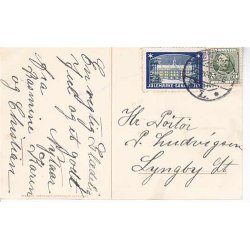 En rigtig Glædelig
Jul og et godt
Nytaar
fra
Rasmine Karin
og Christian
JULEMARKE
Hr Portör
P. Ludvigsen
Lyngby St